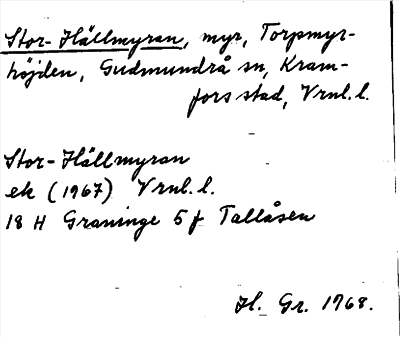 Stor-Hällmyran, myr, Torpmyr-
höjden, Gudmundrå sn, Kram-
fors stad, Vrnl. l.
Stor-Hällmyran
ek (1967) Vrnl. l.
18 H Graninge 5 f Tallåsen
H. Gr. 1968.